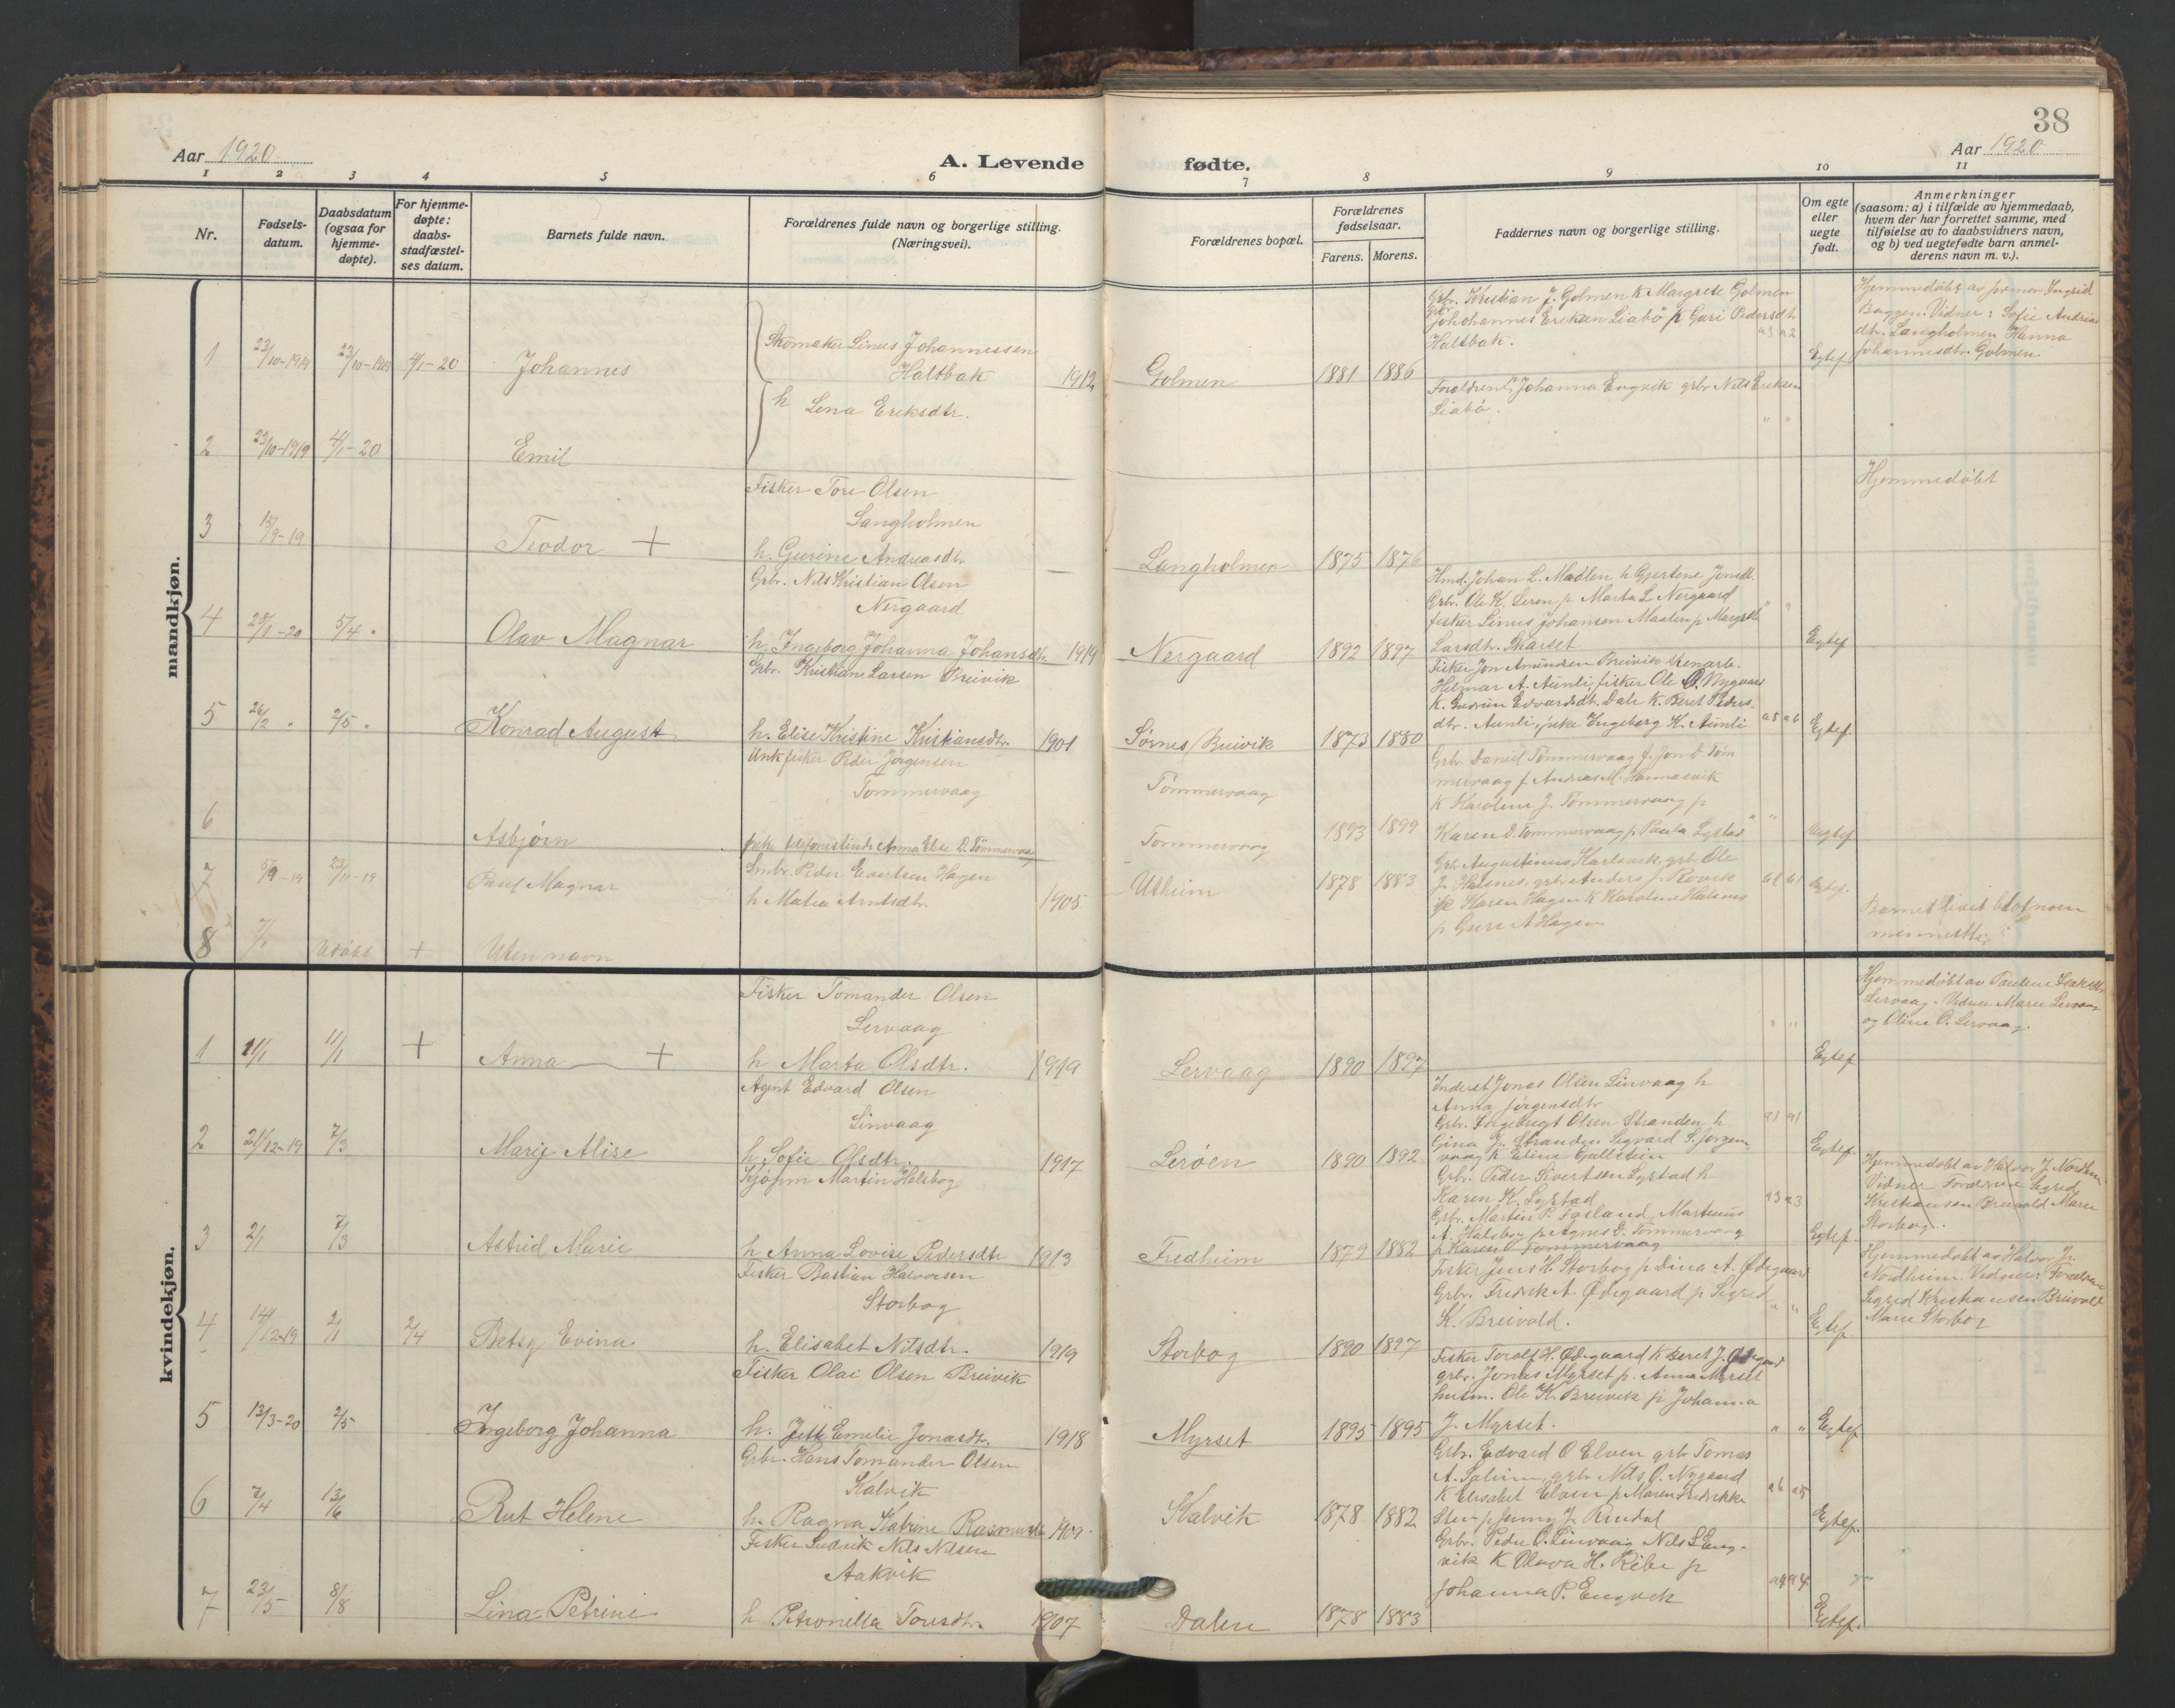 38
Aar 1920
A. Levende fødte.
Aar 1920
1 2 3 4 5 6 7 8 9 10 11
Nr.
Fødsels-
datum.
Daabsdatum
(ogsaa for
hjemme-
døpte).
For hjemme-
døpte:
daabs-
stadfæstel-
ses datum.
Barnets fulde navn.
Forældrenes fulde navn og borgerlige stilling.
(Næringsvei).
Forældrenes bopæl.
Forældrenes
fødselsaar.
Farens. Morens.
Faddernes navn og borgerlige stilling.
Om egte
eller
uegte
født.
Anmerkninger
(saasom: a) i tilfælde av hjemmedaab,
hvem der har forrettet samme, med
tilføielse av to daabsvidners navn,
og b) ved uegtefødte barn anmel-
derens navn m. v.).
mandkjøn.
1 23/10-1919 23/10-1919 4/1-20 Johannes
Skomaker Linus Johannessen
Haltbak 1912
h Lena Eriksdtr.
Golmen 1881 1886
Grbr. Kristian J. Golmen K Margrete Golmen
Johannes Eriksen Liabö p Guri Pedersdtr
Haltbak. a3 a2
Egtef
Hjemmedöbt av Ingrid
Baggen. Vidner: Sofie Andrias
dtr. Langholmen Hanna
Johannesdtr. Golmen
2 23/10-1919 4/1-20 Emil
Forældrene, Johanna Engvik grbr Nils Eriksen
Liabö. " "
3 15/9-19 Teodor +
Fisker Tore Olsen
Langholmen
h. Gurine Andreasdtr —
Langholmen 1875 1876
Hjemmedöbt
4 28/1-20 5/4 " Olav Magnar
Grbr. Nils Kristian Olsen
Nergaard
h. Ingeborg Johanna Johansdtr. 1919
Nergaard 1892 1897
Hmd. Johan L. Maalen h Gjertine Jonsdt.
Grbr. Ole K. Leren p Marta L Nergaard
fisker Linus Johansen Maalen p Margrethe
Larsdtr. Skarset " "
Egtef
5 26/2 " 2/5 " Konrad August
Grbr. Kristian Larsen Breivik
h. Elise Kristine Kristiansdtr. 1901
Sörnes/Breivik 1873 1880
Fisker Jon Amundsen Breivik
Helmar A. Aunli, fisker Ole O. Nygaard
K. Gudrun Edvardsdt. Dale K. Beret Peders-
dtr. Aunli, pike Ingeborg K. Aunli a8 a6
Egtef.
6 Asbjørn
Unkfisker Peder Jørgensen
Tömmervaag
pike telefonistinde Anna Else D. Tömmervaag
Tömmervaag
Tömmervaag 1893 1899
Grbr. Daniel Tömmervaag f. Jon D. Töm
mervaag f Andreas M. Hannasvik
K Karoline J. Tömmervaag p
Karen D. Tömmervaag p Paula Lystad " "
Uegtef
7 5/9-19 23/11-19 Paul Magnar
Smbr. Peder Evertsen Hagen
h Matea Arntsdtr. 1905
Utheim 1878 1883
Grb Augustinus Karlsvik, grb Ole
J. Halsnes, grb Anders J. Rövik
Karen Hagen K Karoline Halsnes
p Guri A Hagen b1 b1
Egtef.
8 7/1 Udöbt + Uten navn
Barnet livet blot noen
minutter
kvindekjøn.
1 11/1 11/1 + Anna — +
Fisker Tomander Olsen
Lervaag
h Marta Olsdtr. 1919
Lervaag 1890 1897 " "
Egtef
Hjemmedöbt av Pauline Isaksdtr
Lervaag. Vidner Maren Lervaag
og Oline O. Lervaag.
2 21/12-19 7/3 Marie Alise
Agent Edvard Olsen
Linvaag
h. Sofie Olsdtr. 1917
Leröen 1890 1892
Inderst Jonas Olsen Linvaag h
Anna Jörgensdtr
Grbr. Ingebrigt Olsen Stranden h
Gina J. Stranden Sigvard S. Jörgen
vaag K Elina Gullstein a1 a1
Egtef.
3 2/1 7/3 Astrid Marie
Kjöpm Martin Halsbog
h Anna Lovise Pedersdtr 1913
Fredheim 1879 1882
Grbr. Peder Sivertsen Lystad h
Karen K. Lystad
Grbr. Martin P. Fasland, Martinus
A. Halsbog p Agnes D. Tömmervaag
p Karen O Tömmervaag a3 a3
Egtef.
Hjemmedöbt av Halvor J. Nordheim
Vidner Forældrene Sigrid
Kristiansen Breivold Marie
Storbog.
4 14/12-19 2/1 2/4 Betsy Evina
Fisker Bastian Halvorsen
Storbog
h. Elisabet Nilsdtr. 1919
Storbog 1890 1897
Fisker Jens H. Storbog p Dina A. Ödegaard
Grbr. Fredrik A. Ödegaard p Sigrid
K. Breivold. " "
Egtef
Hjemmedöbt av Halvor J.
Nordheim. Vidner: Forældrene
Sigrid Kristiansen Breivold
Marie Storbog
5 13/3-20 2/5 Ingeborg Johanna
Fisker Olai Olsen Breivik
h. Jette Emelie Jonasdtr. 1918
Myrset 1895 1895
Fisker Toralf H. Ödegaard K Beret J. Ödegaard
grbr. Jonas Myrset p. Anna Myrset
husm. Ole K. Breivik p Johanna
J. Myrset. " "
Egtef
6 7/4 13/6 Rut Helene
Grbr. Hans Tomander Olsen
Kalvik
h. Ragna Katrine Rasmusdtr 1909
Kalvik 1878 1882
Grbr. Edvard O Elven grb Tomas
A. Solum, grb Nils O. Nygaard
K Elisabet Elven p Maren Fredrikke
Sten p Jenny J. Rindal a6 a5
Egtef.
7 23/5 8/8 Lina Petrine
Fisker Ludvik Nils Nilsen
Aakvik
h Petronella Toresdtr. 1907
Dalen 1878 1883
Grbr. Peder O. Linvaag Nils L Eng-
vik K Olava H. Ribe p
Johanna P. Engvik a9 a4
Egtef.